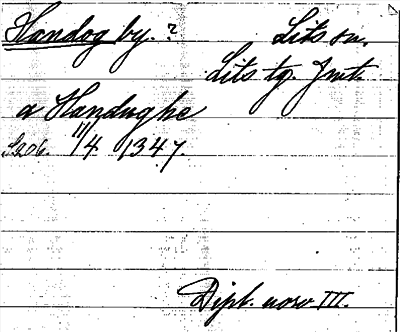 Handog by. ? Lits sn.
Lits tg. Jmtl.
a Handughe
S206. 11/4 1347.
Dipl. norv III.